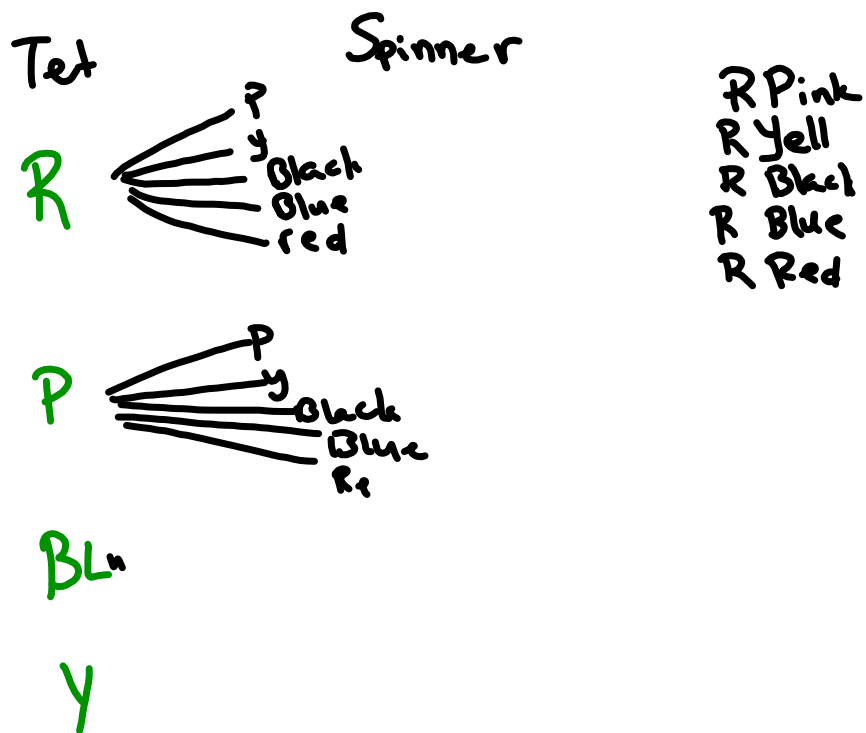 Tet Spinner
R
P
y
Black
Blue
red
R Pink
R Yell
R Black
R Blue
R Red
P
P
y
Black
Blue
Re
BLu
Y